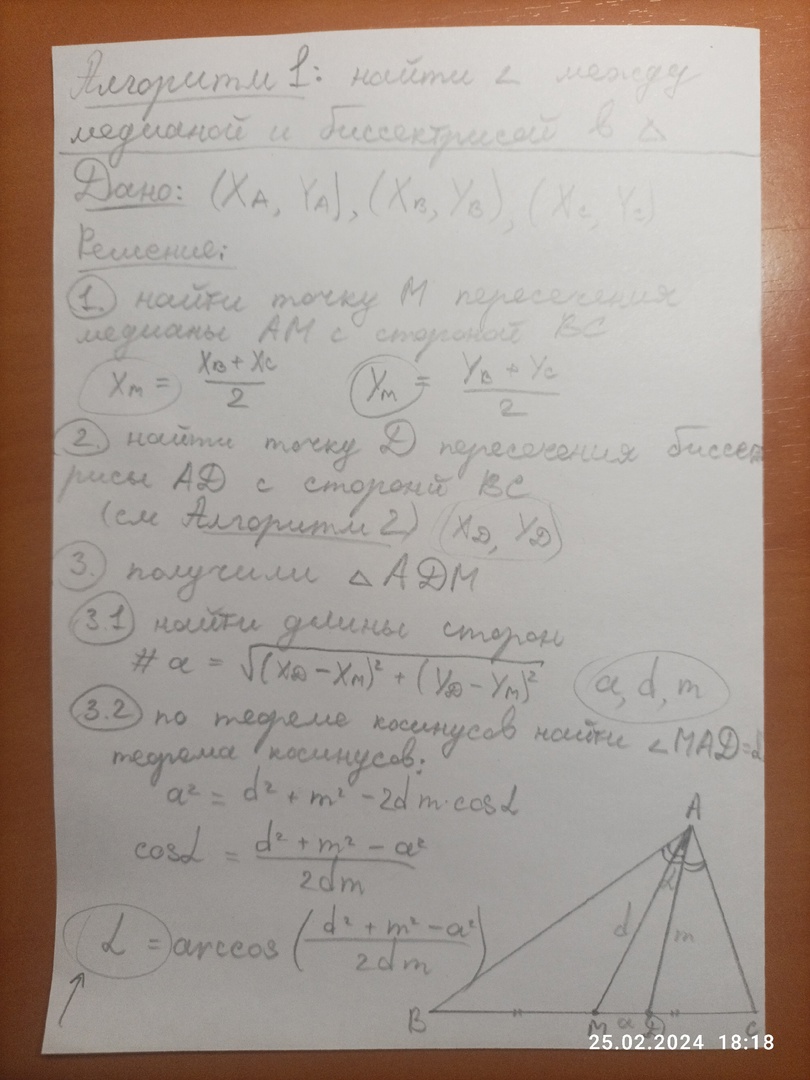 Алгоритм 1: найти ∠ между
медианой и биссектрисой в △
Дано: (XA, YA), (XB, YB), (XC, YC)
Решение:
1. найти точку M пересечения
медианы AM с стороной BC
XM = (XB + XC)/2 YM = (YB + YC)/2
2. найти точку D пересечения биссект
рисы AD с стороной BC
(см Алгоритм 2) (XD, YD)
3. получили △ADM
3.1 найти длины сторон
# a = √((XD − XM)² + (YD − YM)²) a, d, m
3.2 по теореме косинусов найти ∠MAD=α
теорема косинусов:
a² = d² + m² − 2dm·cosα
cosα = (d² + m² − a²)/2dm
α = arccos((d² + m² − a²)/2dm)
A
α
d m
B M a D C
25.02.2024 18:18